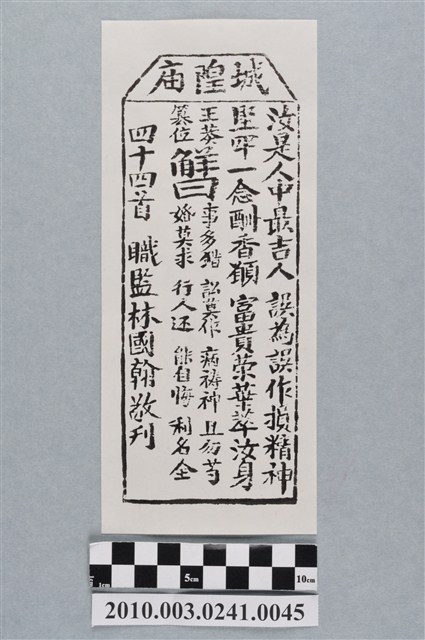 城隍庙
汝是人中最吉人 誤為誤作損精神
堅牢一念酬香願 富貴榮華萃汝身
王莽篡位
解曰
事多錯 訟莫作 病禱神 且勿芍
婚莫求 行人还 能自悔 利名全
四十四首 職監林國翰敬刊
1cm 5cm 10cm
2010.003.0241.0045